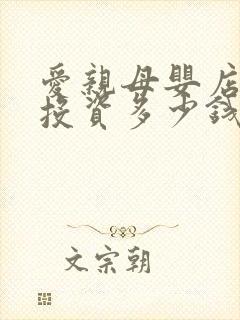 愛親母嬰店
投資多少錢
文宗朝